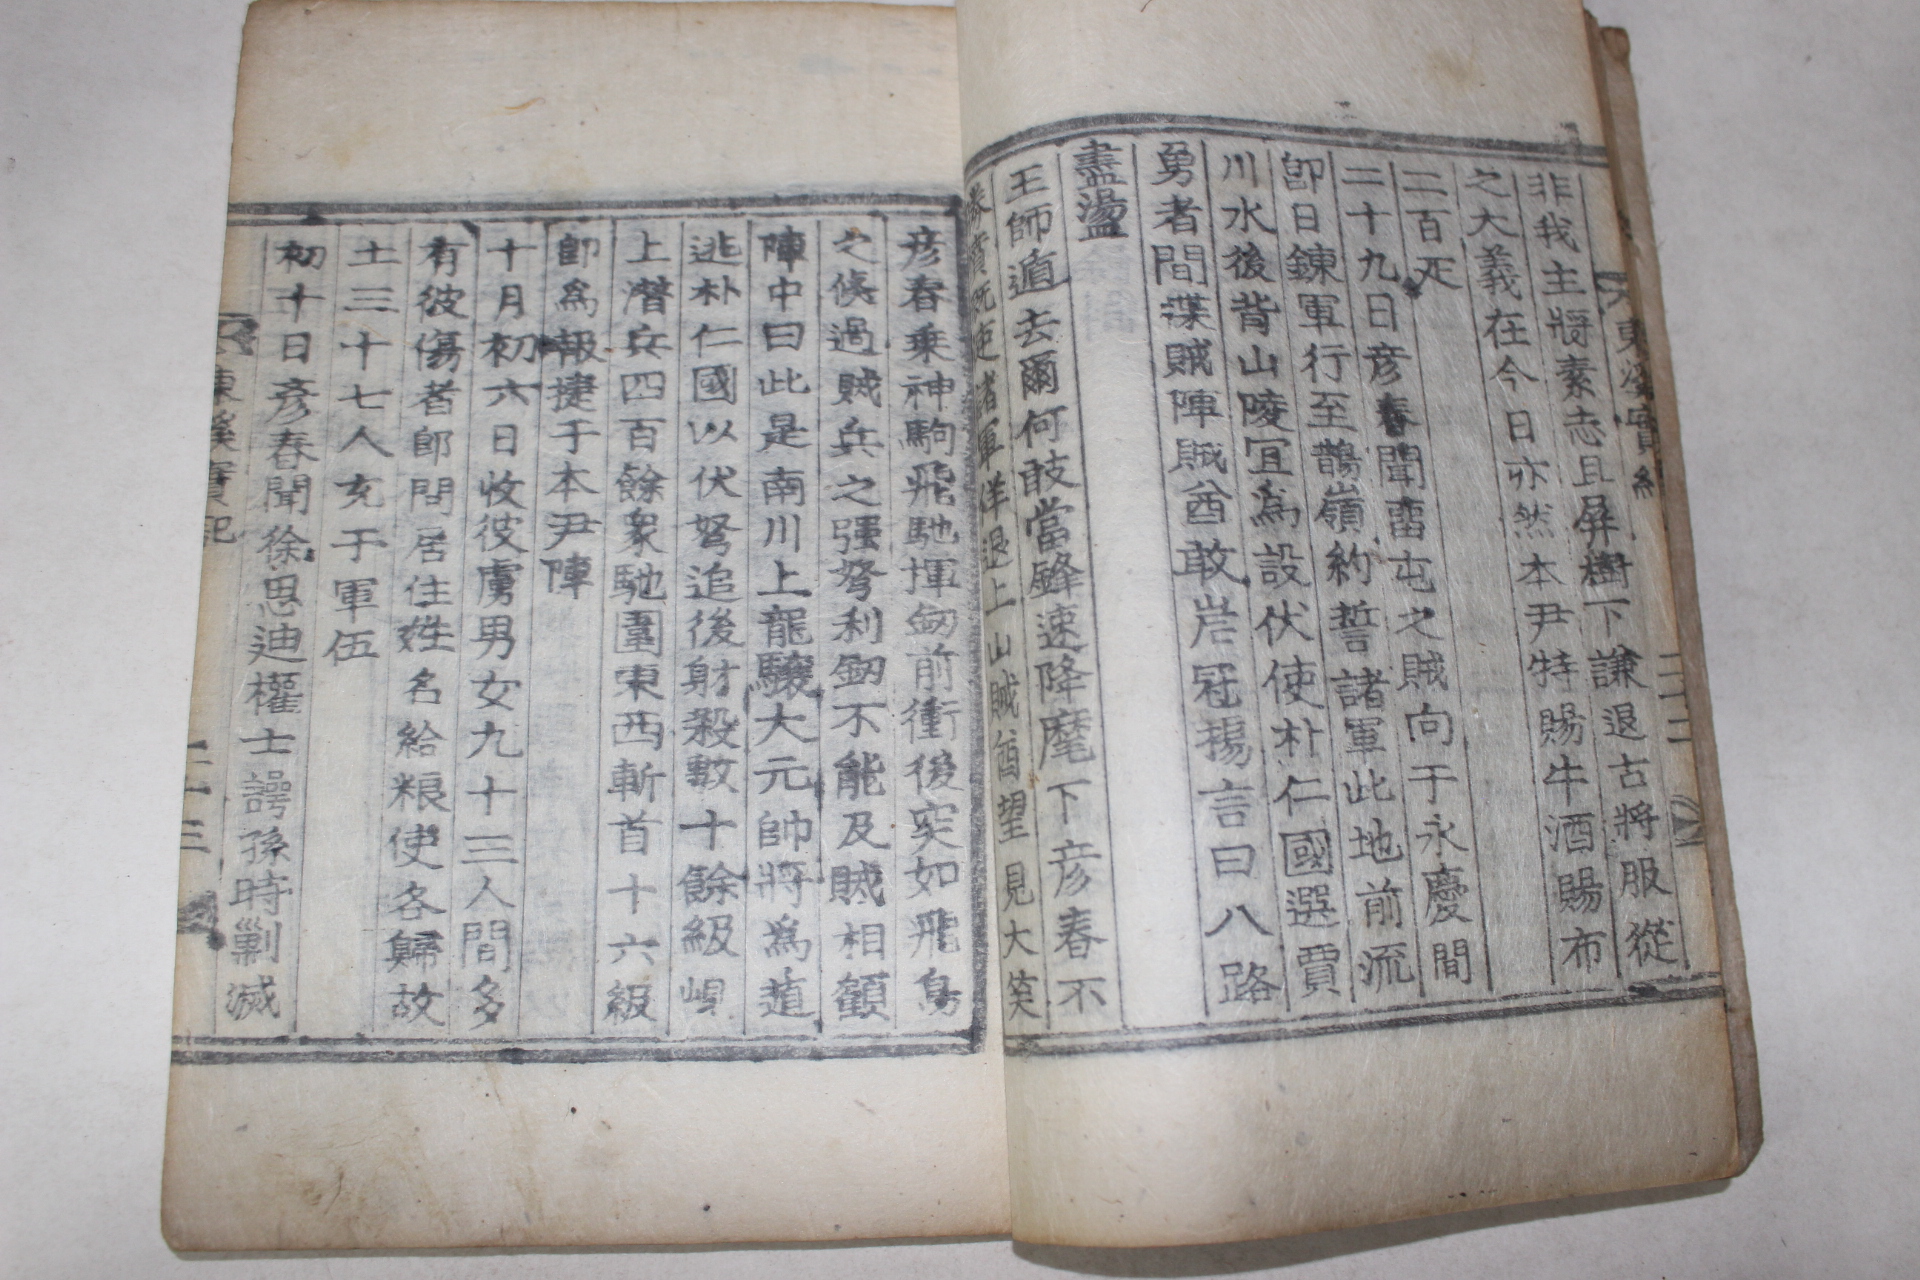 東溪實紀
二十二
非我主將素志且屛樹下謙退古將服從
之大義在今日亦然本尹特賜牛酒賜布
二百疋
二十九日彦春聞雷屯之賊向于永慶間
卽日鍊軍行至鵲嶺約誓諸軍此地前流
川水後背山陵宜爲設伏使朴仁國選賈
勇者間諜賊陣賊酋敢岩冠揚言曰八路
盡蕩
王師遁去爾何敢當鋒速降麾下彦春不
勝憤旣使諸軍佯退上山賊酋望見大笑
彦春乘神駒飛馳揮劒前衝後突如飛鳥
之倏過賊兵之强弩利劒不能及賊相顧
陣中曰此是南川上龍驤大元帥將爲遁
逃朴仁國以伏弩追後射殺數十餘級峴
上潛兵四百餘衆馳圍東西斬首十六級
卽爲報捷于本尹陣
十月初六日收彼虜男女九十三人間多
有彼傷者卽問居住姓名給粮使各歸故
土三十七人充于軍伍
初十日彦春聞徐思迪權士諤孫時剿滅
東溪實紀
二十三